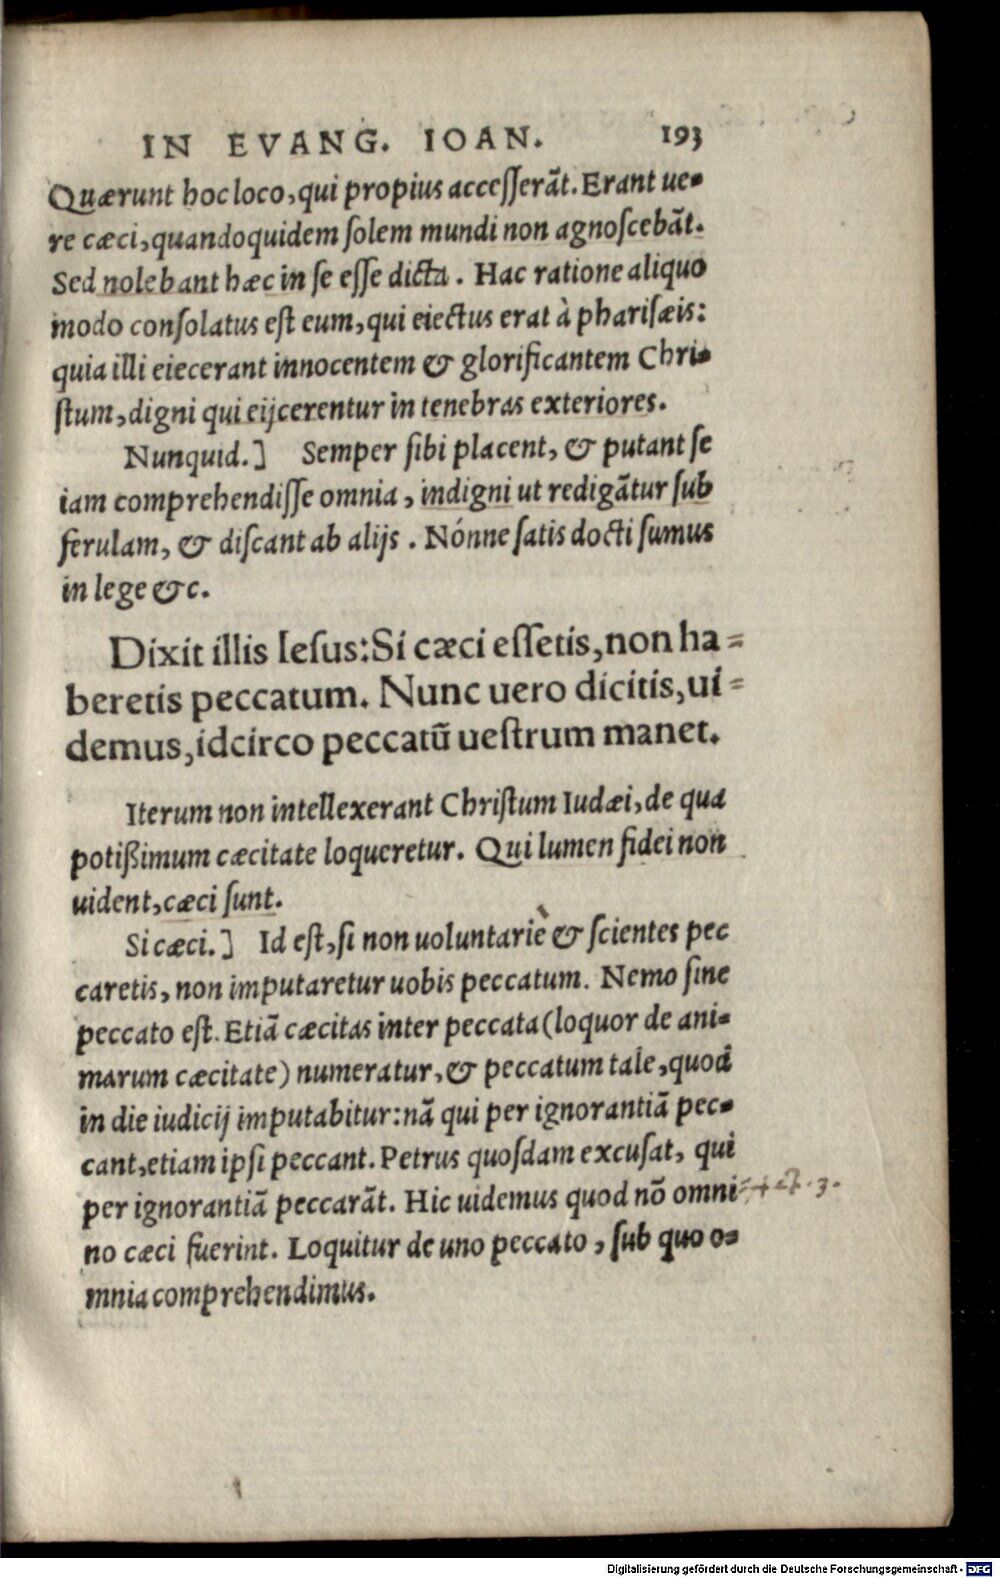 IN EVANG. IOAN. 193
Quærunt hoc loco, qui propius accesserãt. Erant ue-
re cæci, quandoquidem solem mundi non agnoscebãt.
Sed nolebant hæc in se esse dicta. Hac ratione aliquo
modo consolatus est eum, qui eiectus erat à pharisæis:
quia illi eiecerant innocentem & glorificantem Chri-
stum, digni qui eijcerentur in tenebras exteriores.
Nunquid.] Semper sibi placent, & putant se
iam comprehendisse omnia, indigni ut redigãtur sub
ferulam, & discant ab alijs. Nónne satis docti sumus
in lege &c.
Dixit illis Iesus: Si cæci essetis, non ha-
beretis peccatum. Nunc uero dicitis, ui-
demus, idcirco peccatũ uestrum manet.
Iterum non intellexerant Christum Iudæi, de qua
potißimum cæcitate loqueretur. Qui lumen fidei non
uident, cæci sunt.
Si cæci.] Id est, si non uoluntariè & scientes pec
caretis, non imputaretur uobis peccatum. Nemo sine
peccato est. Etiã cæcitas inter peccata (loquor de ani-
marum cæcitate) numeratur, & peccatum tale, quod
in die iudicij imputabitur: nã qui per ignorantiã pec-
cant, etiam ipsi peccant. Petrus quosdam excusat, qui
per ignorantiã peccarãt. Hic uidemus quod nõ omni
no cæci fuerint. Loquitur de uno peccato, sub quo o-
mnia comprehendimus.
Digitalisierung gefördert durch die Deutsche Forschungsgemeinschaft - DFG